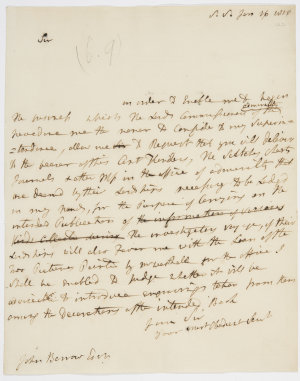 Jan 16 1811
Sir
(6.9)
in order to enable me to begin
the moment which the Lords Commissioners Admiralty
have done me the honor to confide to my Superin=
=tendence, allow me to Request that you will deliver
to the bearer of this Art the Sketches, Charts
Journals & other MSS in the office of admiralty that
are deemd by their Lordships necessary to be Lodgd
in my hands, for the Purpose of carrying on the
intended Publication of the information of various
the investigator's voyage, if their
Lordships will also favor me with the Loan of the
Pictures Painted by for the office I
Shall be enabled to judge whether it will be
adviseable to introduce engravings taken from them
among the Decorations of the intended Book
I am Sir
your most Obedient Servt
John Barrow Esqr